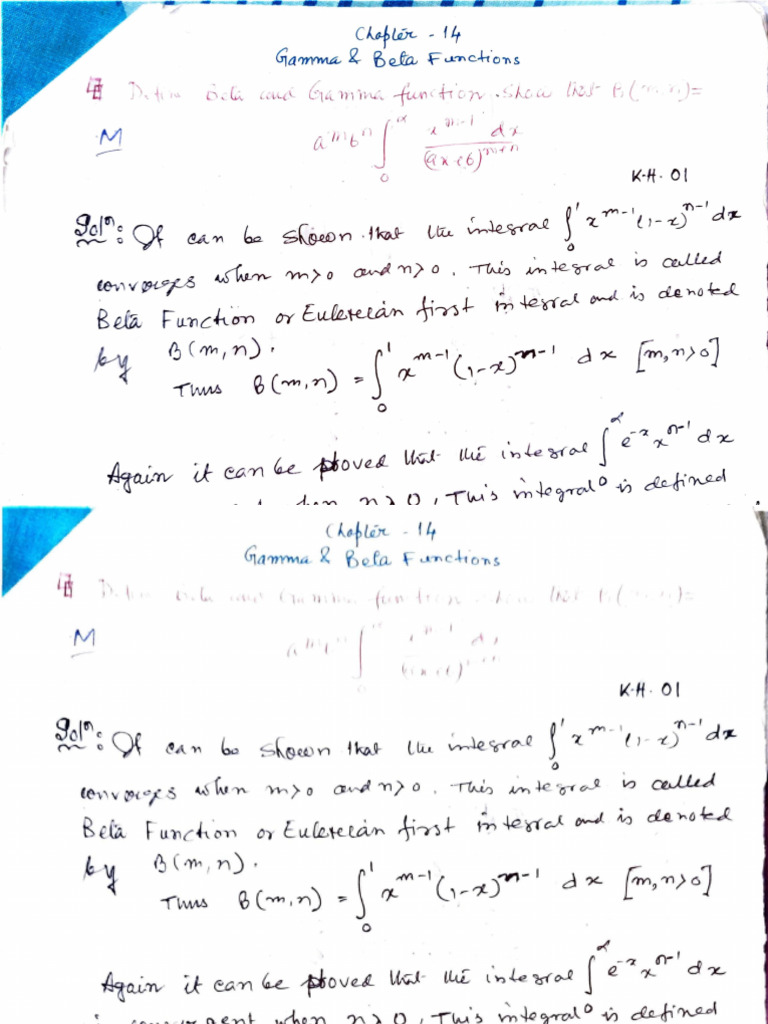 Chapter - 14
Gamma & Beta Functions
Define Beta and Gamma function. Show that B(m,n)=
M
a^m b^n ∫_0^∝ x^{m-1} dx / (ax+b)^{m+n}
K.H. 01
Solⁿ: It can be shown that the integral ∫_0^1 x^{m-1} (1-x)^{n-1} dx
converges when m>0 and n>0. This integral is called
Beta Function or Eulereian first integral and is denoted
by B(m,n).
Thus B(m,n) = ∫_0^1 x^{m-1} (1-x)^{n-1} dx [m,n>0]
Again it can be proved that the integral ∫_0^∝ e^{-x} x^{n-1} dx
when n>0, This integral is defined
Chapter - 14
Gamma & Beta Functions
M
K.H. 01
Solⁿ: It can be shown that the integral ∫_0^1 x^{m-1} (1-x)^{n-1} dx
converges when m>0 and n>0. This integral is called
Beta Function or Eulereian first integral and is denoted
by B(m,n).
Thus B(m,n) = ∫_0^1 x^{m-1} (1-x)^{n-1} dx [m,n>0]
Again it can be proved that the integral ∫_0^∝ e^{-x} x^{n-1} dx
is convergent when n>0, This integral is defined